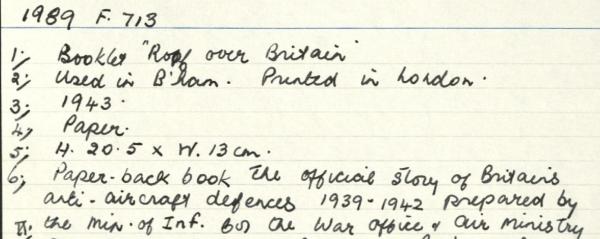 1989 F. 713
1; Booklet "Roof over Britain"
2; Used in B'ham. Printed in London.
3; 1943.
4; Paper.
5; H. 20.5 x W. 13 cm.
6; Paper-back book The official story of Britain's
anti-aircraft defences 1939-1942 prepared by
the Min. of Inf. for the War office & Air Ministry